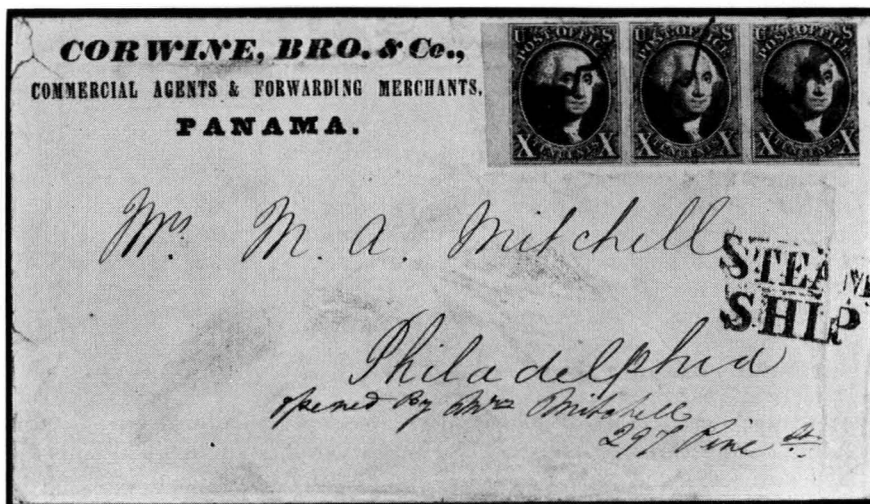 CORWINE, BRO. & Co.,
COMMERCIAL AGENTS & FORWARDING MERCHANTS,
PANAMA.
U S U S U S
POST OFFICE POST OFFICE POST OFFICE
X X X X X X
TEN CENTS TEN CENTS TEN CENTS
Mrs. M. A. Mitchell
STEAM
SHIP
Philadelphia
opened By Mrs Mitchell
297 Pine St.